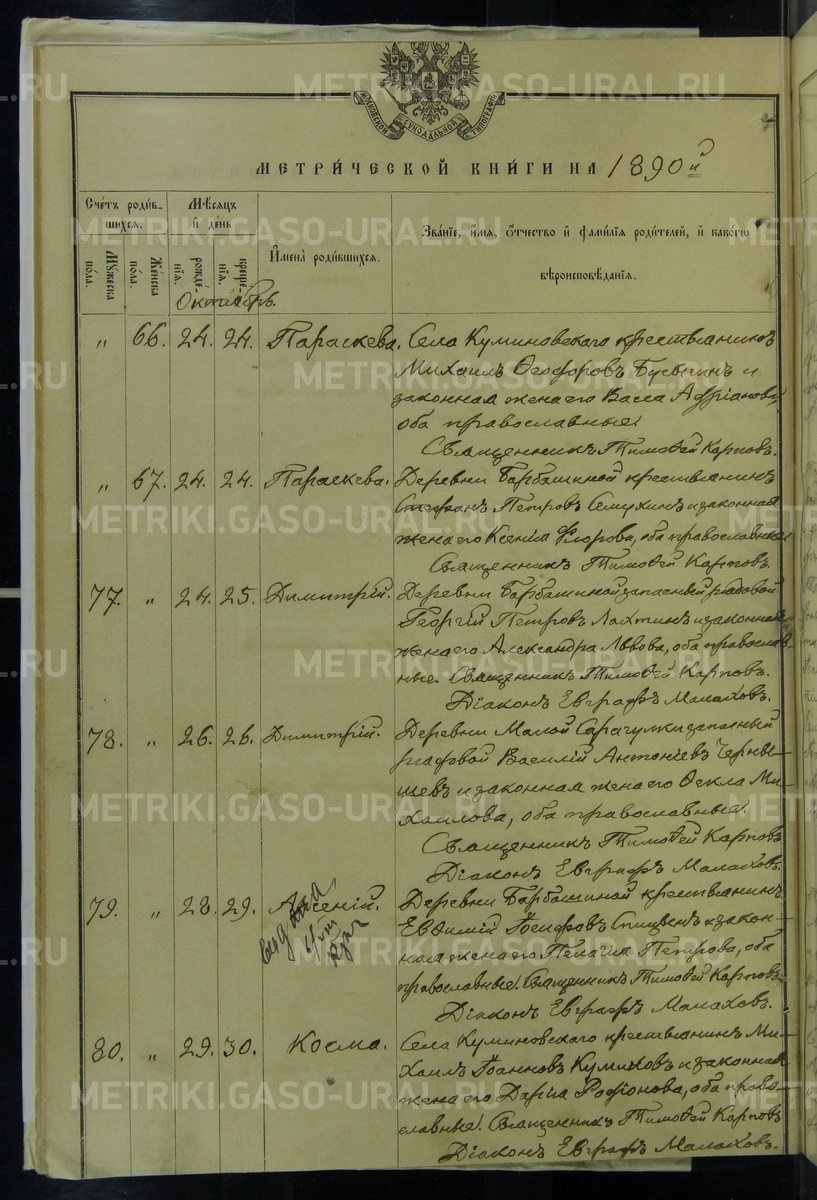 МОСКОВСКОЙ СѴНОДАЛЬНОЙ ТИПОГРАФІИ
МЕТРИ́ЧЕСКОЙ КНИ́ГИ НА 1890й
Сче́тъ роди́в-
шихся.
Мѣсяцъ
и҆ де́нь
И҆мена̀ роди́вшихся.
Зва́ніе, и҆́мя, ѻ҆́тчество и҆ фами́лїя роди́телей, и҆ како́гѡ
вѣроисповѣ́данїя.
Мꙋ́жеска по́ла.
Же́нска по́ла.
рожде́нїя.
креще́нїя.
Октябрь.
" 66. 24. 24. Параскева. Села Куминовскаго крестьянинъ
Михаилъ Ѳеодоровъ Бусыгинъ и
законная жена его Васса Адріанова,
оба православные.
Священникъ Тимоѳей Карповъ.
" 67. 24. 24. Параскева. Деревни Барбашиной крестьянинъ
Стефанъ Петровъ Семухинъ и законная
жена его Ксенія Флорова, оба православные.
Священникъ Тимоѳей Карповъ.
77. " 24. 25. Димитрій. Деревни Барбашиной запасный рядовой
Георгій Петровъ Лахтинъ и законная
жена его Александра Львова, оба православ-
ные. Священникъ Тимоѳей Карповъ.
Діаконъ Евграфъ Малаховъ.
78. " 26. 26. Димитрій. Деревни Малой Сарагулки запасный
рядовой Василій Антоніевъ Черны-
шевъ и законная жена его Ѳекла Ми-
хаилова, оба православные.
Священникъ Тимоѳей Карповъ
Діаконъ Евграфъ Малаховъ.
79. " 28. 29. Арсеній. Деревни Барбашиной крестьянинъ
Евѳимій Іосифовъ Спицинъ и закон-
ная жена его Пелагія Петрова, оба
православные. Священникъ Тимоѳей Карповъ
Діаконъ Евграфъ Малаховъ.
80. " 29. 30. Косма. Села Куминовскаго крестьянинъ Ми-
хаилъ Іоанновъ Куминовъ и законная
жена его Дарія Родіонова, оба право-
славные. Священникъ Тимоѳей Карповъ
Діаконъ Евграфъ Малаховъ.
METRIKI.GASO-URAL.RU